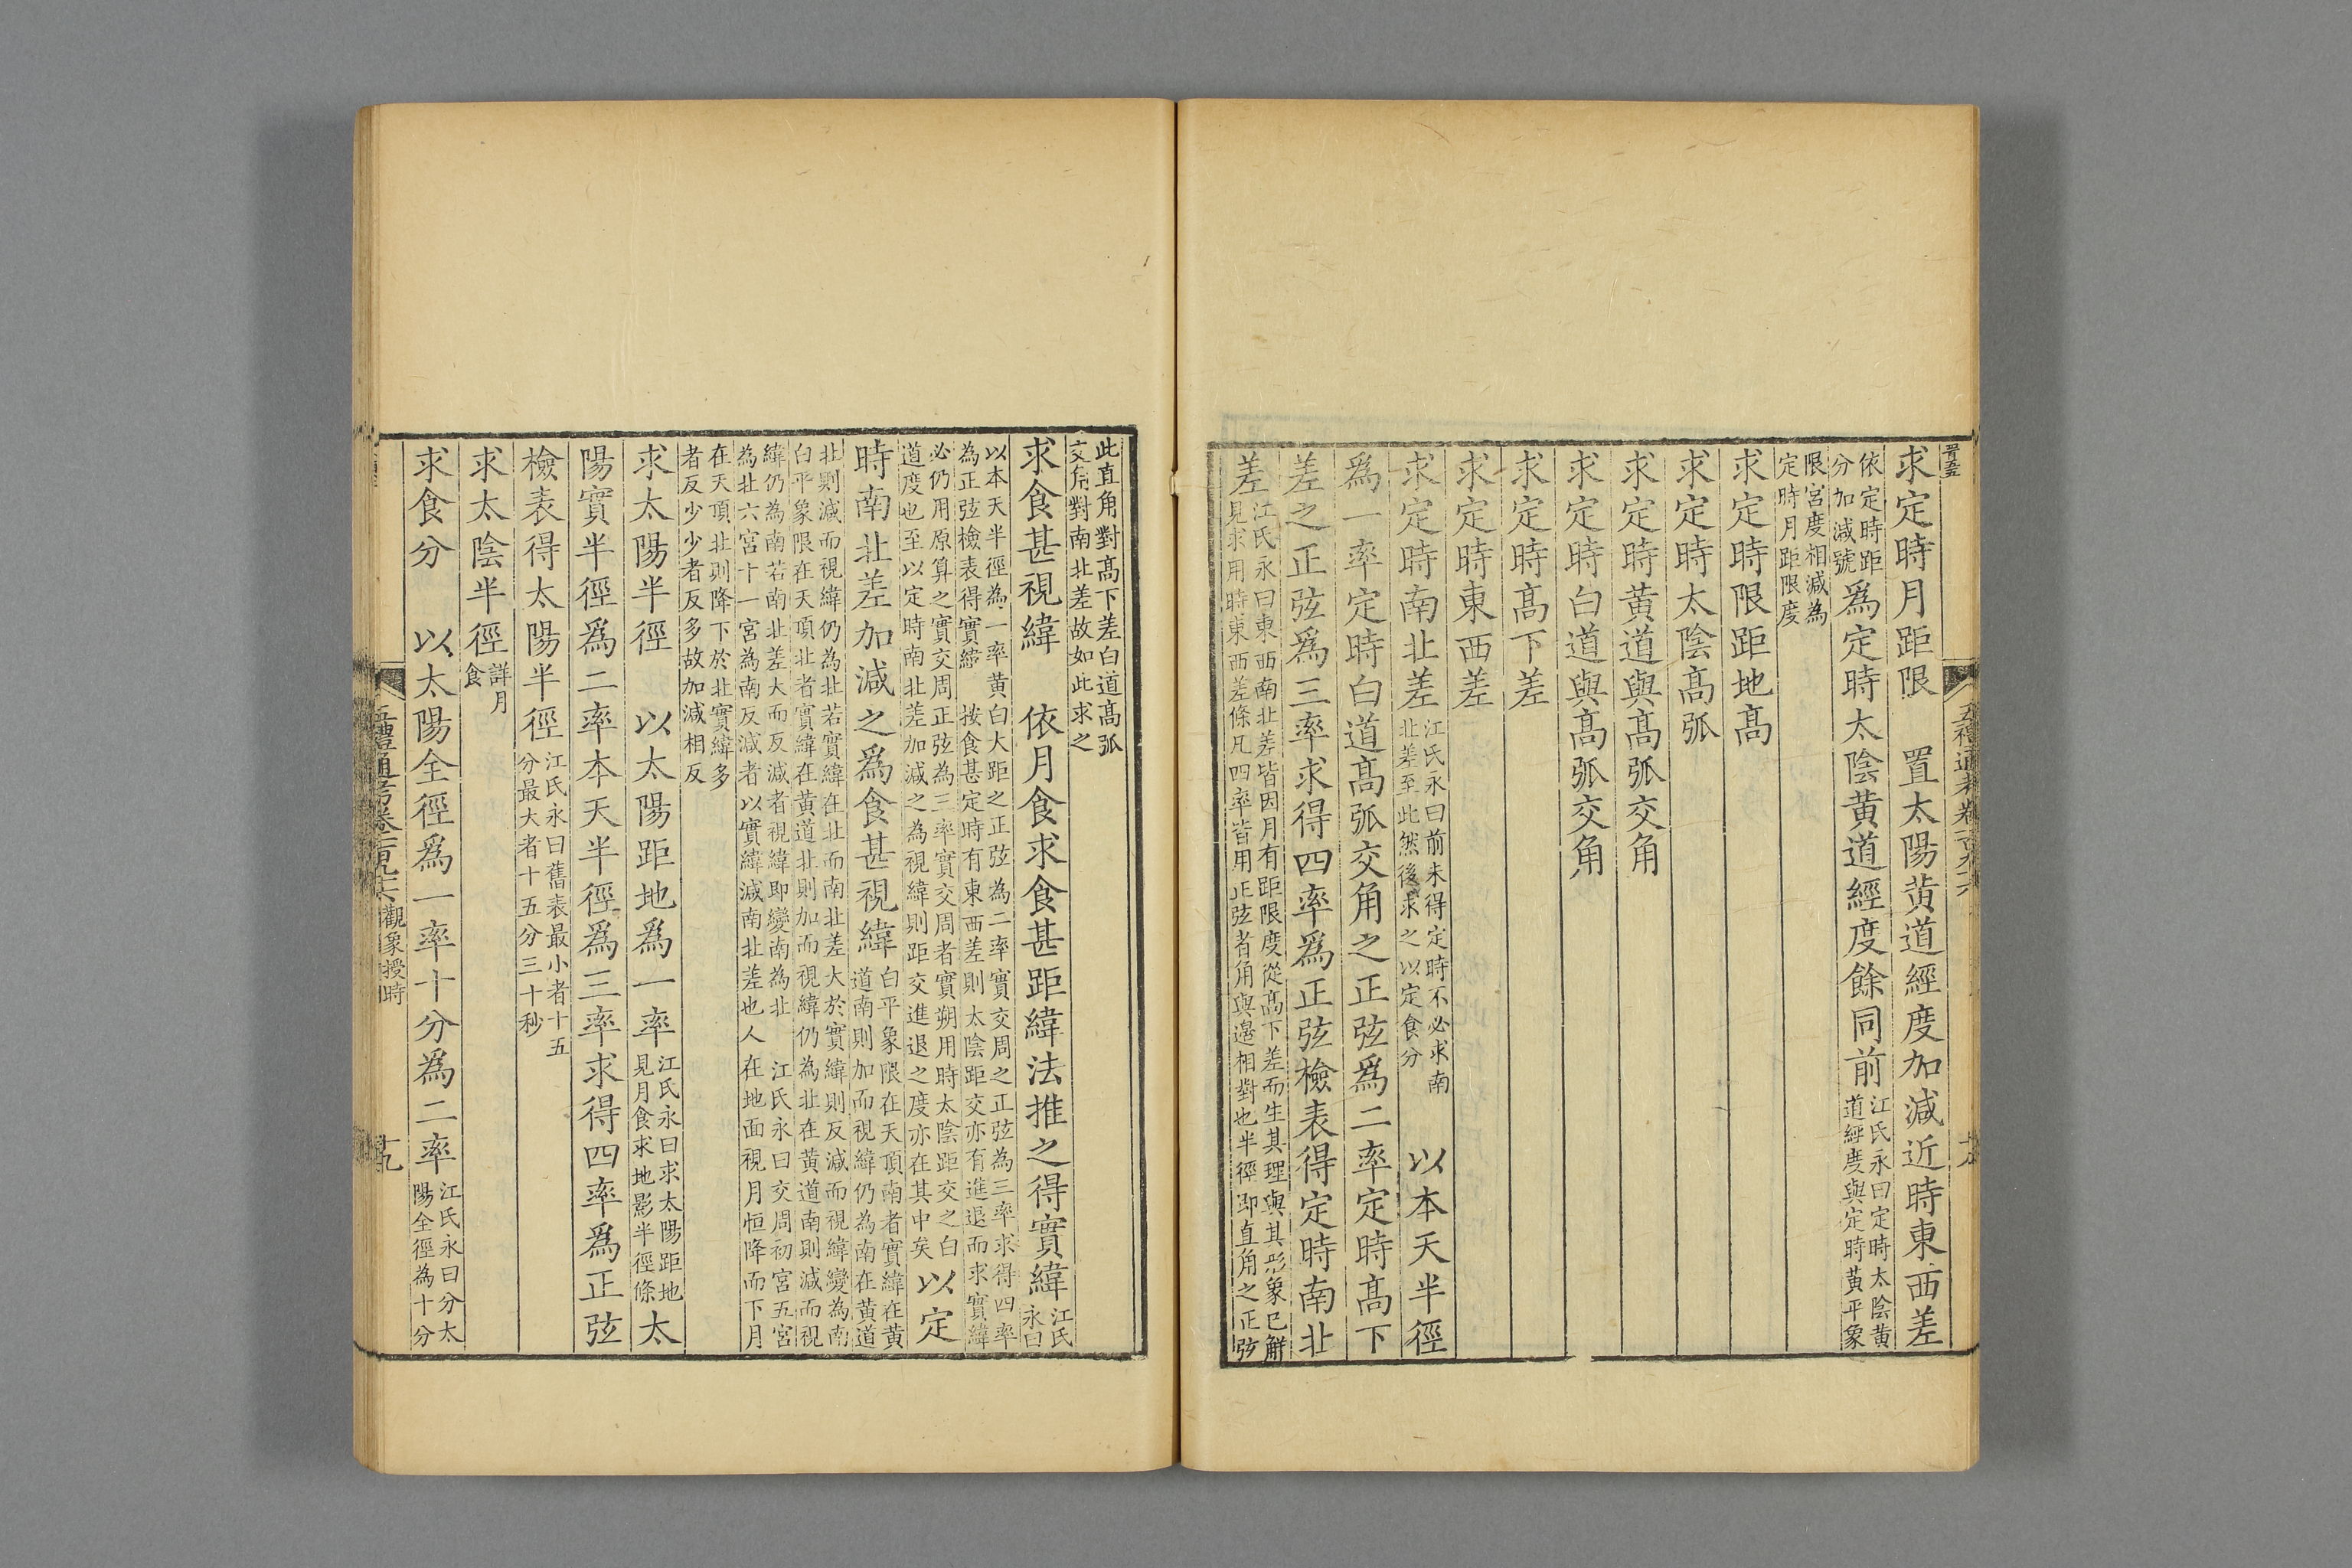 求定時月距限　置太陽黃道經度加減近時東西差
依定時距
分加減號
爲定時太陰黃道經度餘同前
江氏永曰定時太陰黃
道經度與定時黃平象
限宮度相減為
定時月距限度
求定時限距地高
求定時太陰高弧
求定時黃道與高弧交角
求定時白道與高弧交角
求定時高下差
求定時東西差
求定時南北差
江氏永曰前未得定時不必求南
北差至此然後求之以定食分
以本天半徑
爲一率定時白道高弧交角之正弦爲二率定時高下
差之正弦爲三率求得四率爲正弦檢表得定時南北
差
江氏永曰東西南北差皆因月有距限度從高下差而生其理與其形象已觧
見求用時東西差條凡四率皆用正弦者角與邊相對也半徑即直角之正弦
此直角對高下差白道高弧
交角對南北差故如此求之
求食甚視緯　依月食求食甚距緯法推之得實緯
江氏
永曰
以本天半徑為一率黃白大距之正弦為二率實交周之正弦為三率求得四率
為正弦檢表得實緯　按食甚定時有東西差則太陰距交亦有進退而求實緯
必仍用原算之實交周正弦為三率實交周者實朔用時太陰距交之白
道度也至以定時南北差加減之為視緯則距交進退之度亦在其中矣
以定
時南北差加減之爲食甚視緯
白平象限在天頂南者實緯在黃
道南則加而視緯仍為南在黃道
北則減而視緯仍為北若實緯在北而南北差大於實緯則反減而視緯變為南
白平象限在天頂北者實緯在黃道北則加而視緯仍為北在黃道南則減而視
緯仍為南若南北差大而反減者視緯即變南為北　江氏永曰交周初宮五宮
為北六宮十一宮為南反減者以實緯減南北差也人在地面視月恒降而下月
在天頂北則降下於北實緯多
者反少少者反多故加減相反
求太陽半徑　以太陽距地爲一率
江氏永曰求太陽距地
見月食求地影半徑條
太
陽實半徑爲二率本天半徑爲三率求得四率爲正弦
檢表得太陽半徑
江氏永曰舊表最小者十五
分最大者十五分三十秒
求太陰半徑
詳月
食
求食分　以太陽全徑爲一率十分爲二率
江氏永曰分太
陽全徑為十分
觀象授時
十九